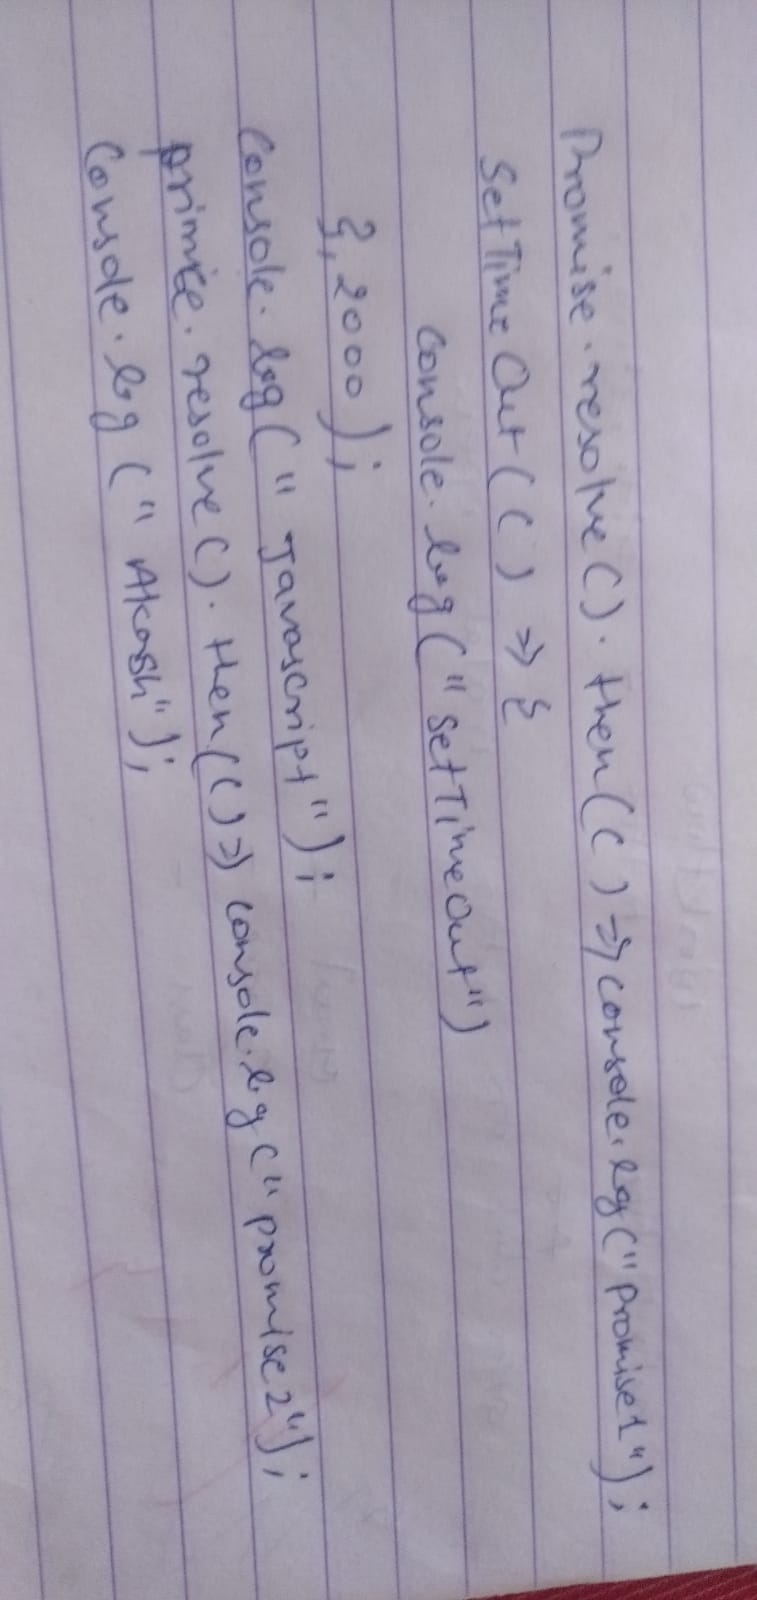 Promise.resolve().then(() => console.log("Promise1");
SetTimeOut(() => {
console.log("SetTimeOut")
}, 2000);
Console.log("Javascript");
primise.resolve().then(() => console.log("promise2");
Console.log("Akash");